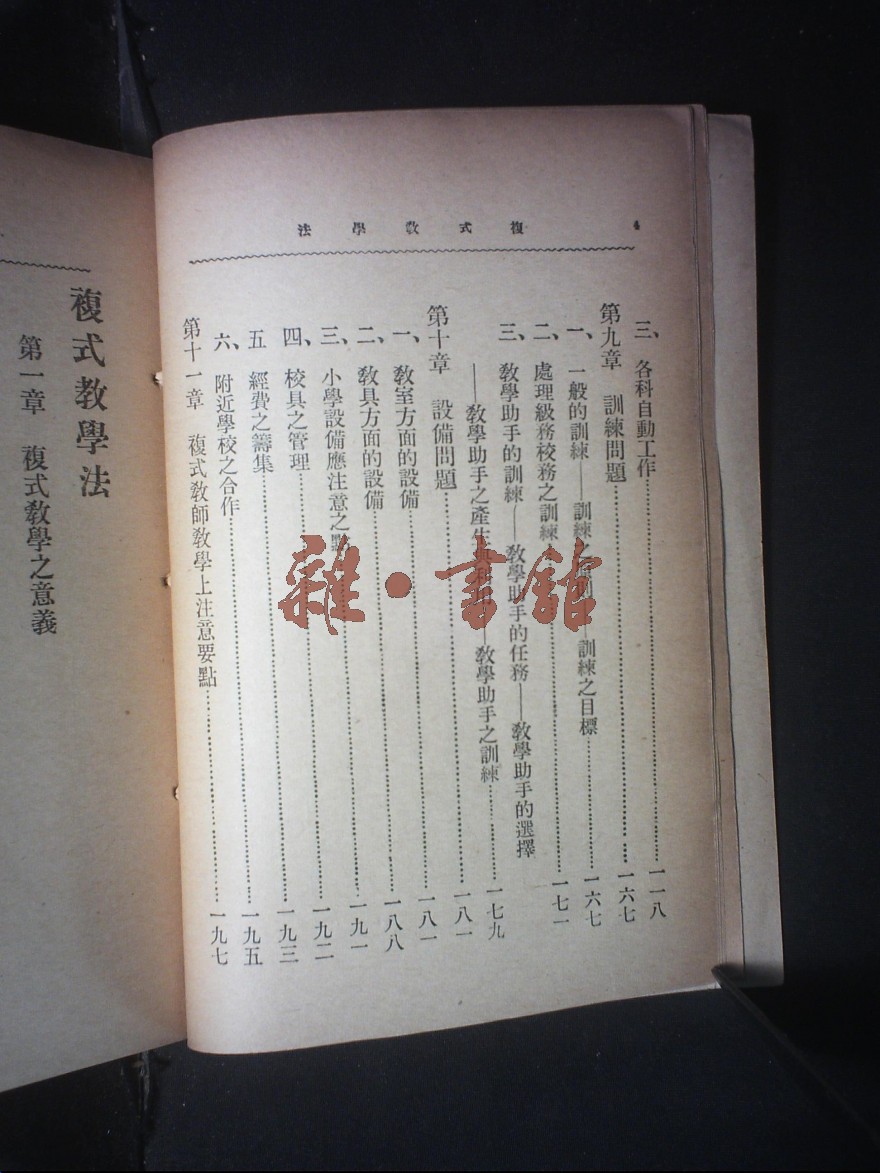 4
複式教學法
三、各科自動工作……一一八
第九章 訓練問題……一六七
一、一般的訓練——訓練之原則——訓練之目標……一六七
二、處理級務校務之訓練……一七一
三、教學助手的訓練——教學助手的任務——教學助手的選擇
——教學助手之產生與——教學助手之訓練……一七九
第十章 設備問題……一八一
一、教室方面的設備……一八一
二、教具方面的設備……一八八
三、小學設備應注意之點……一九一
四、校具之管理……一九二
五 經費之籌集……一九三
六、附近學校之合作……一九五
第十一章 複式教師教學上注意要點……一九七
複式教學法
第一章 複式教學之意義
雜·書館